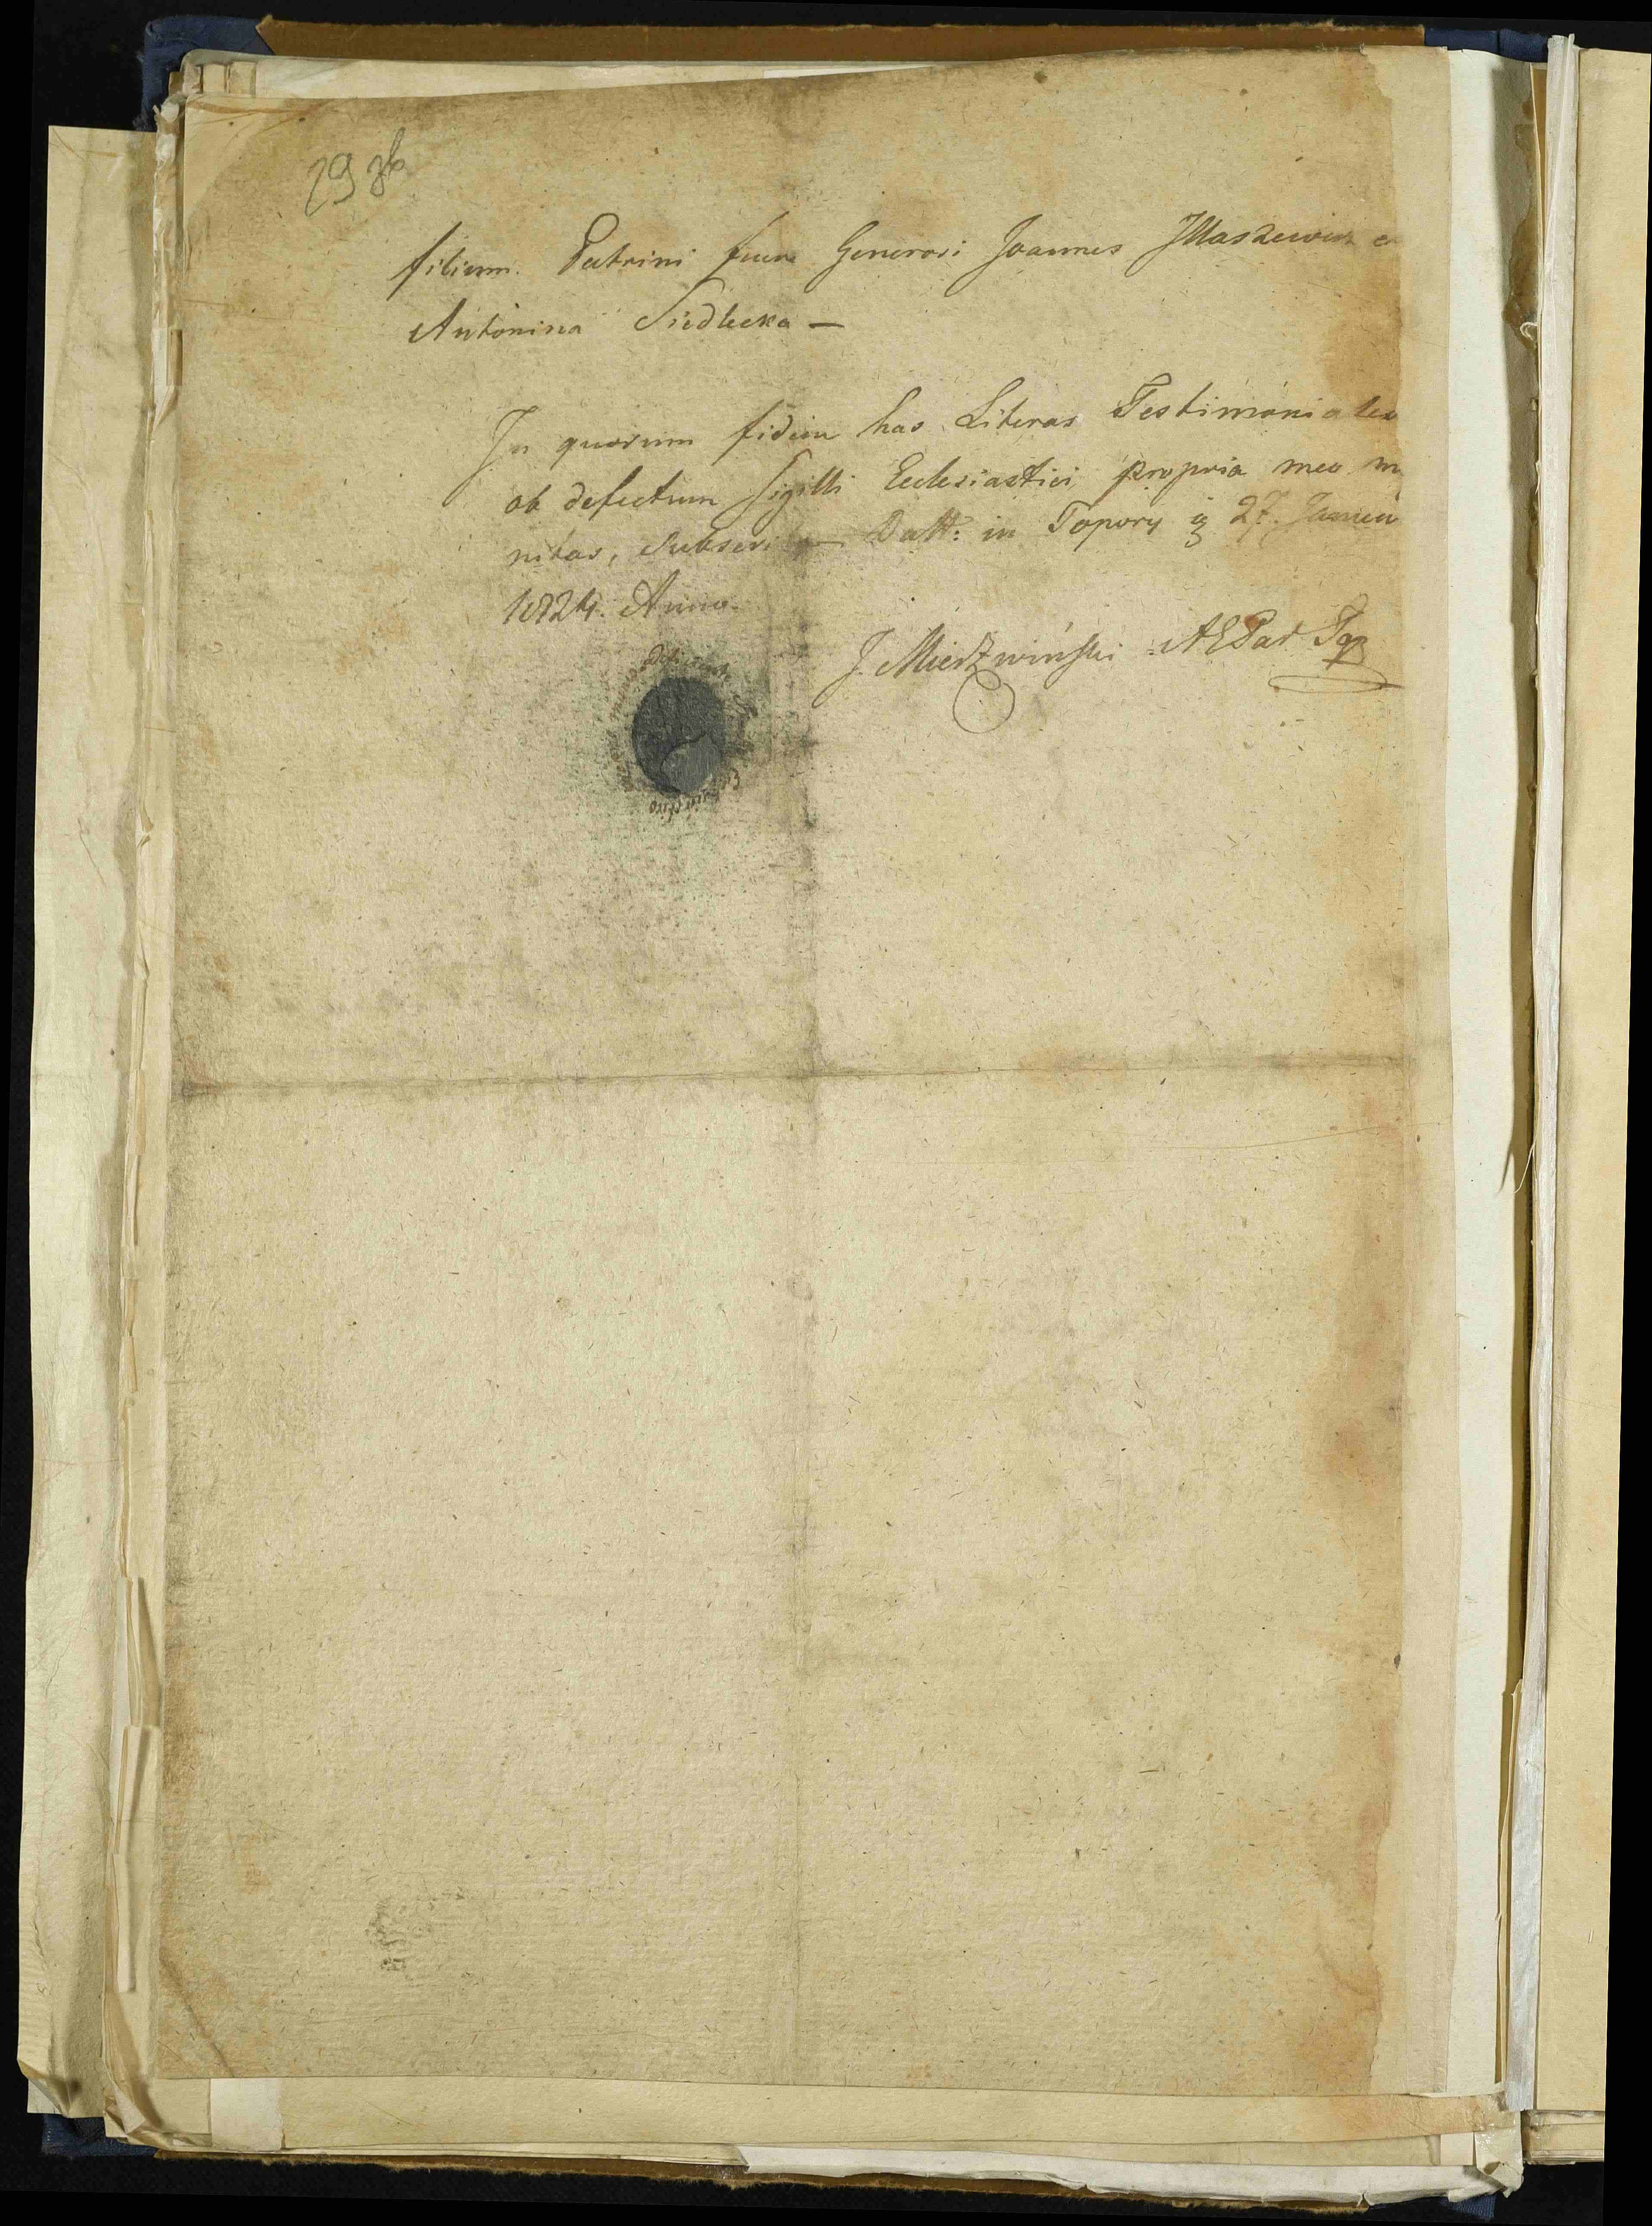 29 зв
filium. Patrini fuere Generosi Joannes Jllaszewicz e
Antonina Siedlecka —
In quorum fidem has Literas Testimoniales
ob defectum sigilli Ecclesiastici propria meo m
nitas, Subscri — Datt: in Topory 27. Januen
1824. Anno.
J. Mierzwinski Top